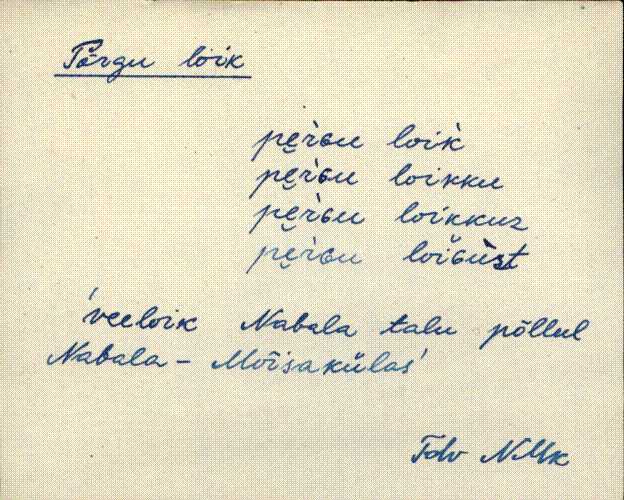 Põrgu loik
pe̮ŕɢu loik̀
pe̮ŕɢu loikku
pe̮ŕɢu loikkuz
pe̮ŕɢu loiɢùst
'veeloik Nabala talu põllul
Nabala - Mõisakülas'
Tdv NMk